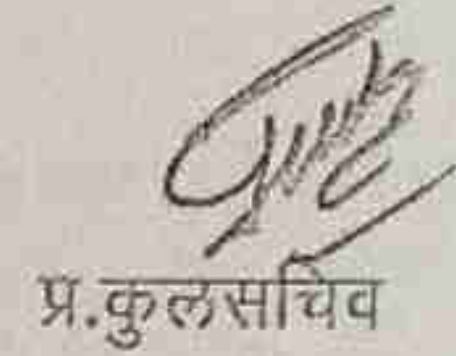 प्र.कुलसचिव